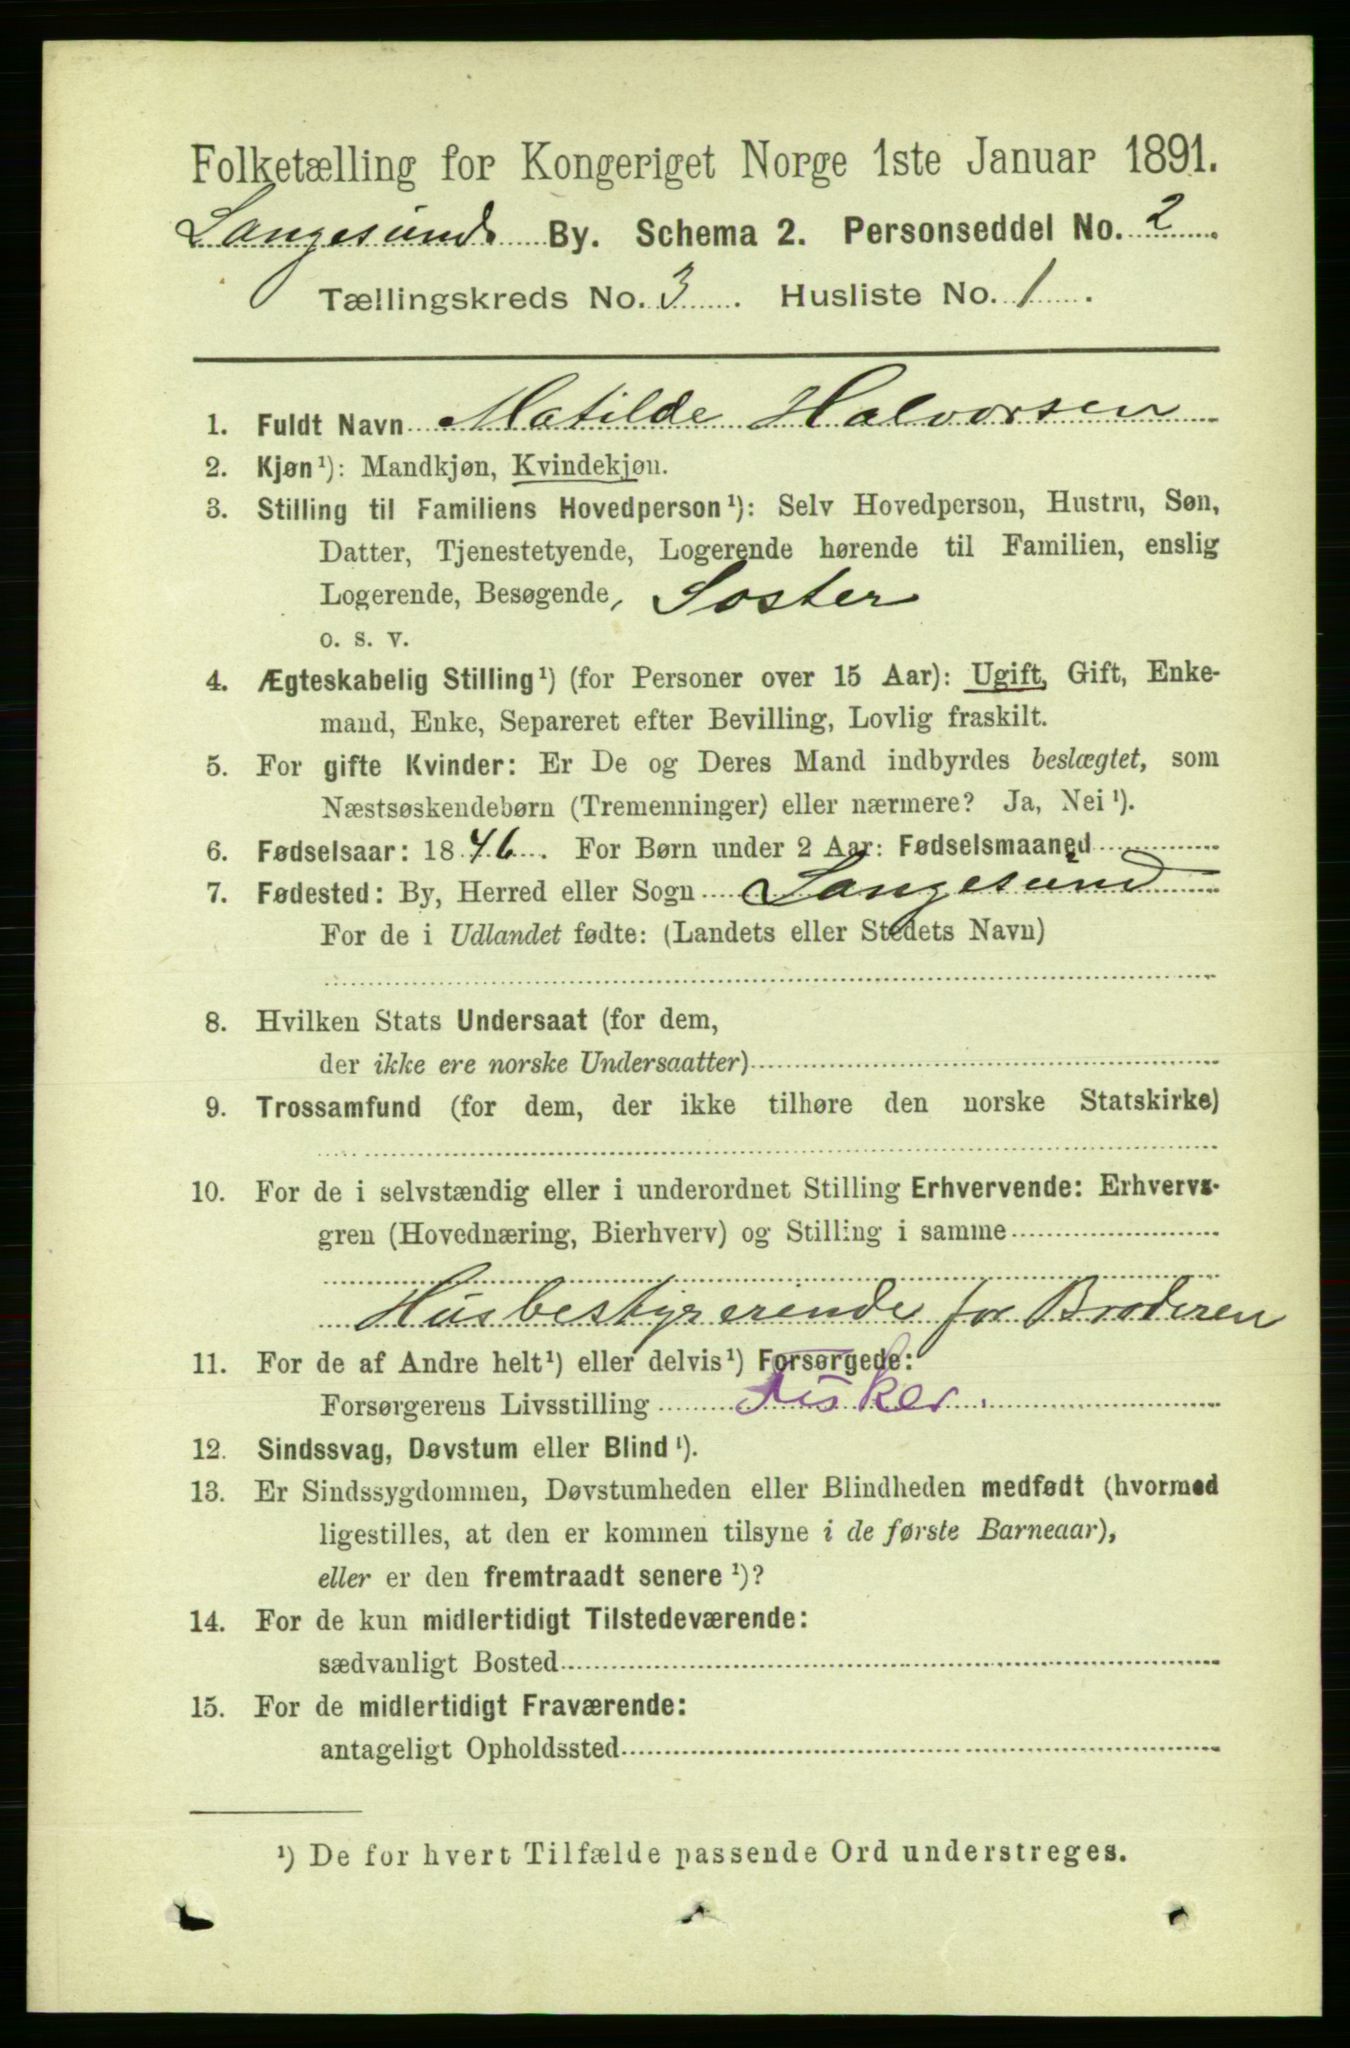 Folketælling for Kongeriget Norge 1ste Januar 1891.
Langesunds By. Schema 2. Personseddel No. 2
Tællingskreds No. 3. Husliste No. 1.
1. Fuldt Navn Matilde Halvorsen
2. Kjøn¹): Mandkjøn, Kvindekjøn.
3. Stilling til Familiens Hovedperson¹): Selv Hovedperson, Hustru, Søn,
Datter, Tjenestetyende, Logerende hørende til Familien, enslig
Logerende, Besøgende, Soster
o. s. v.
4. Ægteskabelig Stilling¹) (for Personer over 15 Aar): Ugift, Gift, Enke-
mand, Enke, Separeret efter Bevilling, Lovlig fraskilt.
5. For gifte Kvinder: Er De og Deres Mand indbyrdes beslægtet, som
Næstsøskendebørn (Tremenninger) eller nærmere? Ja, Nei¹).
6. Fødselsaar: 1846. For Børn under 2 Aar: Fødselsmaaned
7. Fødested: By, Herred eller Sogn Langesund
For de i Udlandet fødte: (Landets eller Stedets Navn)
8. Hvilken Stats Undersaat (for dem,
der ikke ere norske Undersaatter)
9. Trossamfund (for dem, der ikke tilhøre den norske Statskirke)
10. For de i selvstændig eller i underordnet Stilling Erhvervende: Erhvervs-
gren (Hovednæring, Bierhverv) og Stilling i samme
Husbestyrerende for Broderen
11. For de af Andre helt¹) eller delvis¹) Forsørgede:
Forsørgerens Livsstilling Fisker.
12. Sindssvag, Døvstum eller Blind¹).
13. Er Sindssygdommen, Døvstumheden eller Blindheden medfødt (hvormed
ligestilles, at den er kommen tilsyne i de første Barneaar),
eller er den fremtraadt senere¹)?
14. For de kun midlertidigt Tilstedeværende:
sædvanligt Bosted
15. For de midlertidigt Fraværende:
antageligt Opholdssted
¹) De for hvert Tilfælde passende Ord understreges.